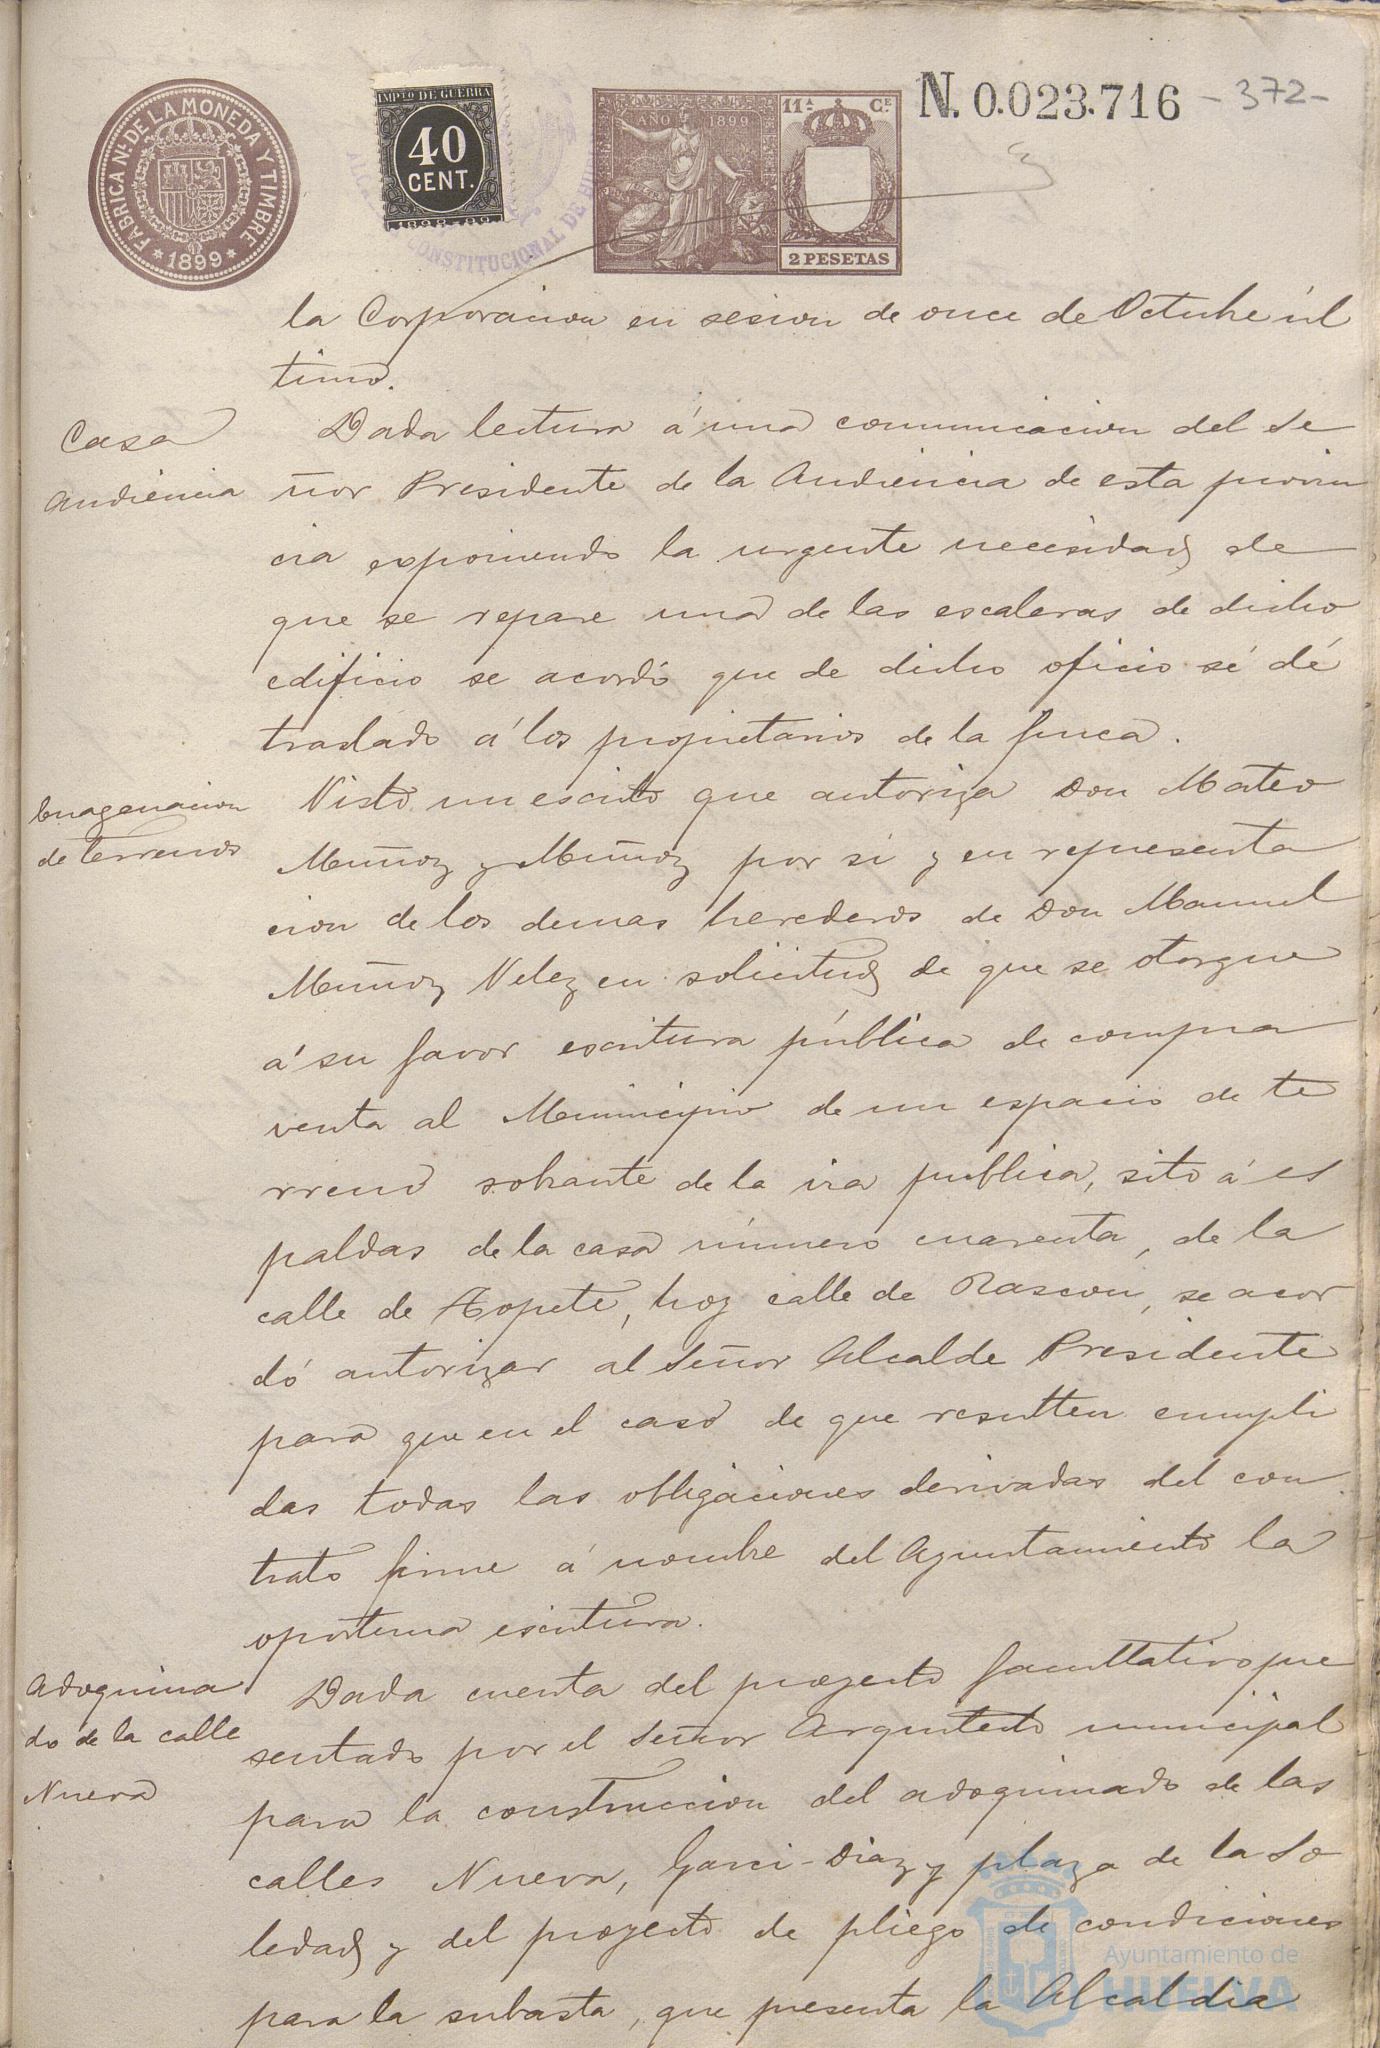 FÁBRICA Nl. DE LA MONEDA Y TIMBRE
* 1899 *
IMPTO DE GUERRA
40
CENT.
1898-99
CONSTITUCIONAL DE HU
AÑO 1899
11ª Ce.
2 PESETAS
N. 0.023.716
-372-
la Corporacion en sesion de once de Octubre úl
timo.
Casa
Audiencia
Dada lectura á una comunicacion del Se
ñor Presidente de la Audiencia de esta provin
cia exponiendo la urgente necesidad de
que se repare una de las escaleras de dicho
edificio se acordó que de dicho oficio se dé
traslado á los propietarios de la finca.
Enagenacion
de terrenos
Visto un escrito que autoriza Don Mateo
Muñoz y Muñoz por si y en representa
cion de los demas herederos de Don Manuel
Muñoz Velez en solicitud de que se otorgue
á su favor escritura pública de compra
venta al Municipio de un espacio de te
rreno sobrante de la via publica, sito á es
paldas de la casa número cuarenta, de la
calle de Topete, hoy calle de Rascon, se acor
dó autorizar al Señor Alcalde Presidente
para que en el caso de que resulten cumpli
das todas las obligaciones derivadas del con
trato firme á nombre del Ayuntamiento la
oportuna escritura.
Adoquina
do de la calle
Nueva
Dada cuenta del proyecto facultativo pre
sentado por el Señor Arquitecto municipal
para la construccion del adoquinado de las
calles Nueva, Garci-Diaz y plaza de la So
ledad y del proyecto de pliego de condiciones
para la subasta, que presenta la Alcaldia
Ayuntamiento de
HUELVA